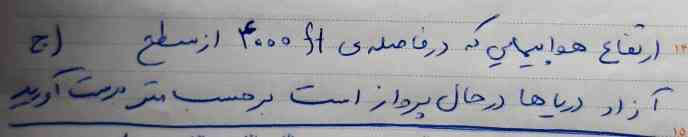 ۱۴ ارتفاع هواپیمایی که در فاصله‌ی ۴۰۰۰ ft از سطح ج)
آزاد دریاها در حال پرواز است برحسب متر بدست آورید
۱۵